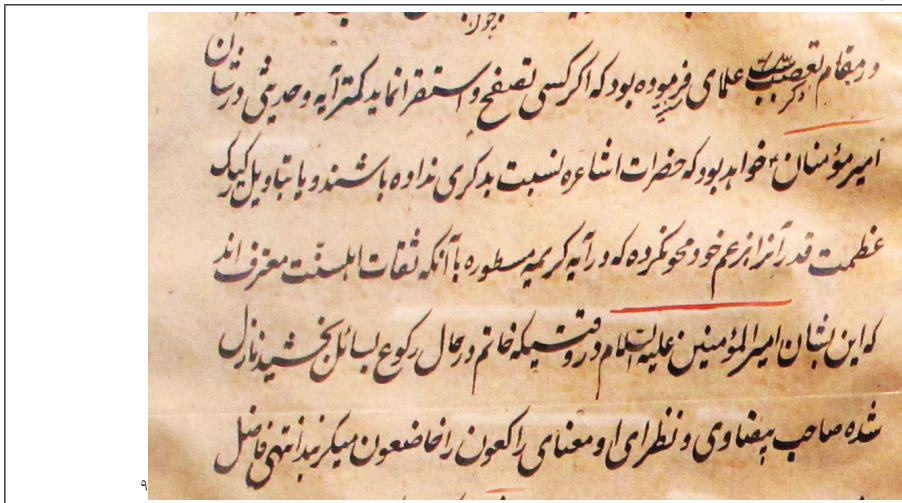 جولان
در مقام تعصب ذکر علمای فرموده بود که اگر کسی تصفح و استقرا نماید کمتر آیه و حدیثی در شان
امیر مؤمنان خواهد بود که حضرات اشاعره نسبت بدیگری نداده باشند و یا بتاویل رکیک
عظمت قدر آنرا بزعم خود محو نکرده که در آیه کریمه مسطوره با آنکه ثقات اهلسنت معترف اند
که این بشان امیر المؤمنین علیه السلام در وقتیکه خاتم در حال رکوع بسائل بخشید نازل
شده صاحب بیضاوی و نظرای او معنای راکعون را خاضعون میگیرند انتهی فاضل
۹